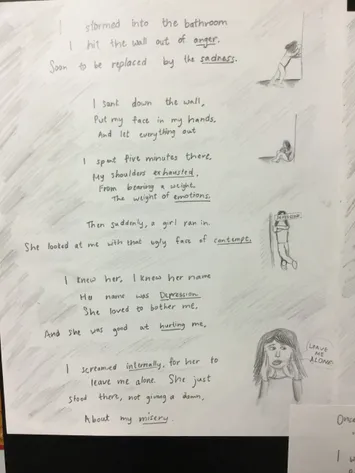 I stormed into the bathroom
I hit the wall out of anger.
Soon to be replaced by the sadness.
I sank down the wall,
Put my face in my hands.
And let everything out
I spent five minutes there,
My shoulders exhausted,
From bearing a weight.
The weight of emotions.
Then suddenly, a girl ran in
She looked at me with that ugly face of contempt.
I knew her, I knew her name
Her name was Depression
She loved to bother me.
And she was good at hurting me.
I screamed internally, for her to
leave me alone. She just
stood there, not giving a damn.
About my misery
LEAVE
ME
ALONE
Once
I